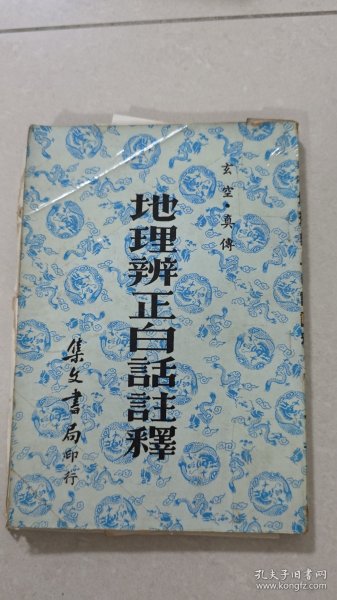 玄空·真傳
地理辨正白話註釋
集文書局印行
孔夫子旧书网